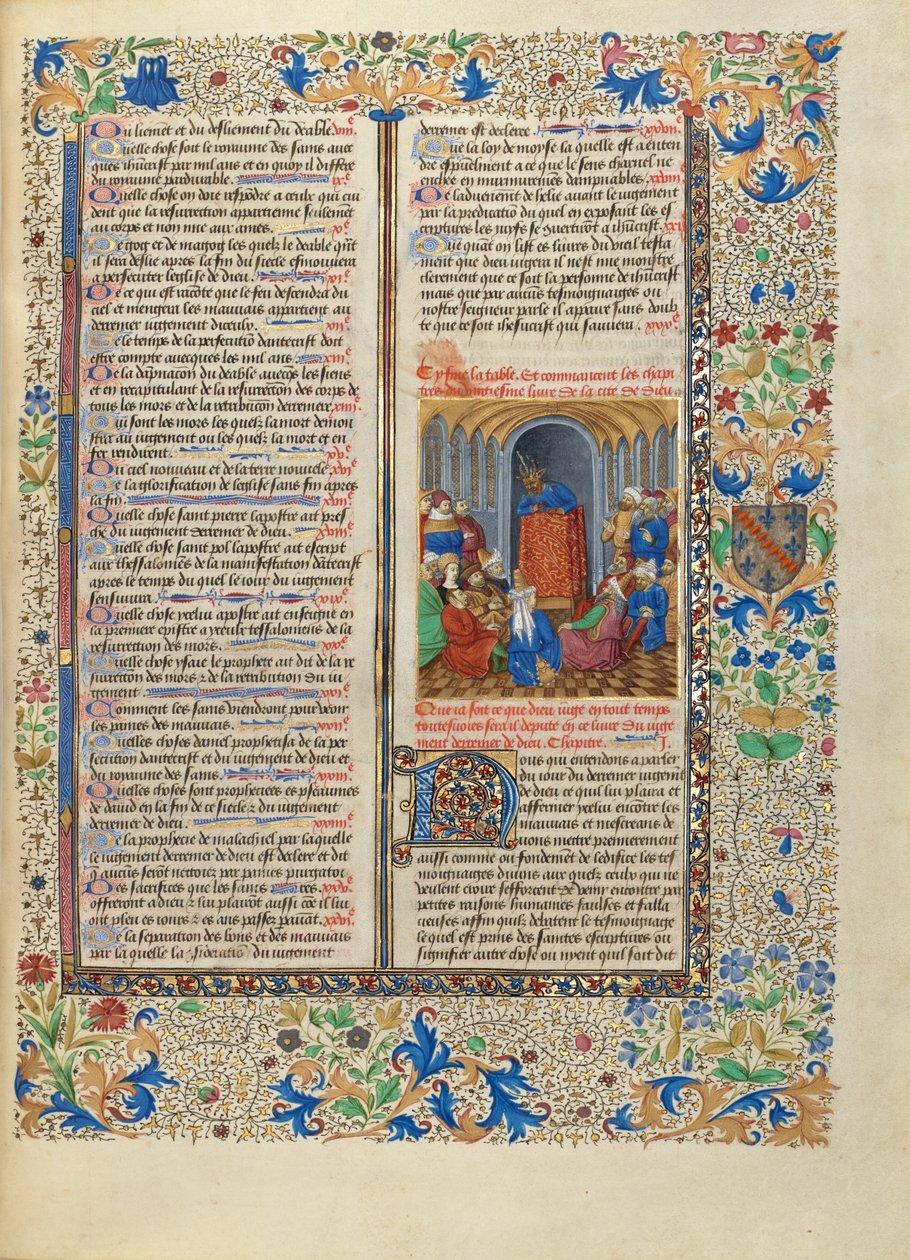 Du liement et du desliement du deable. viii.e
Quelle chose soit le royaume des sains avec
ques ihucrist par mil ans et en quoy il differe
du royaume pardurable. ix.e
Quelle chose on doit respōdre a ceulx qui cui
dent que la resurrection appartiene seulemēt
au corps et non mie aux ames. x.e
De gog et de magog les quelz le deable qn̄t
il sera deslie apres la fin du siecle esmouvera
a persecuter leglise de dieu. xi.e
De ce qui est racōte que le feu descendra du
ciel et mengera les mauvais appartient au
derrenier iugement diceulx. xii.e
Se le temps de la persecutiō dantecrist doit
estre compte avecques les mil ans. xiii.e
De la dāpnacōn du deable avecq̄s les siens
et en recapitulant de la resurrectiōn des corps de
tous les mors et de la retribucōn derrenier. xiiii.e
Qui sont les mors les quelz la mort demon
stra au iugement ou les quelz la mort et en
fer rendirent. xv.e
Du ciel nouveau et de la terre nouvelle. xvi.e
De la glorification de leglise sans fin apres
la fin. xvii.e
Quelle chose saint pierre lapostre ait pres
che du iugement derrenier de dieu. xviii.e
Quelle chose saint pol lapostre ait escript
aux thessalonicēs de la manifestation dātecrist
apres le temps du quel le iour du iugement
sensuivra. xix.e
Quelle chose ycelui apostre ait enseigne en
la premiere epistre a yceulx tessaloniciens de la
resurrection des mors. xx.e
Quelle chose ysaie le prophete ait dit de la re
surrectōn des mors & de la retribution du iu
gement. xxi.e
Comment les sains viendront pour veoir
les paines des mauvais. xxii.e
Quelles choses daniel prophetisa de la per
secution dantecrist et du iugement de dieu et
du royaume des sains. xxiii.e
Quelles choses sont prophecieēs es pseaumes
de david en la fin de ce siecle & du iugement
derrenier de dieu. xxiiii.e
De la prophecie de malachiel par laquelle
le iugement derrenier de dieu est declere et dit
q̄ aucūs serōt nettoiez par paines purgatoi
Des sacrifices que les sains res. xxv.e
offreront a dieu & lui plairōt aussi cōe il lui
ont pleu es iours & es ans passez pavāt. xxvi.e
De la separation des bons et des mauvais
par la quelle la du iugement
derrenier est declere. xxvii.e
Que la loy de moyse la quelle est a enten
dre espūelment a ce que le sens charnel ne
enchee en murmurecmēs dampnables. xxviii.e
De ladvenement de helie avant le iugement
par la predicatiō du quel en exposant les es
criptures les juyfs se cōvertirōt a ihucrist. xxix.e
Que quant on list es livres du vieil testa
ment que dieu iugera il nest mie monstre
clerement que ce soit la personne de ihūcrist
mais que par aucūs tesmoignaiges ou
nostre seigneur parle il appaire sans doub
te que ce soit ihesucrist qui sauvera. xxx.e
Cy fine la table. Et commancent les chapi
tres du vintiesme livre de la cite de dieu
Que ia soit ce que dieu iuge en tout temps
toutesvoies sera il dispute en ce livre du iuge
ment derrenier de dieu. Chapitre. I.e
Nous qui entendons a parler
du iour du derrenier iugemēt
de dieu ce quil lui plaira et
affermer ycelui encontre les
mauvais et mescreans de
vons mettre premierement
aussi comme ou fondement de ledifice les tes
moignages divins aux quelz ceulx qui ne
veulent croire sefforcent de venir encontre par
petites raisons humaines faulses et falla
cieuses affin quilz debatent le tesmoignage
le quel est prins des saintes escriptures ou
signifier autre chose ou nyent quil soit dit